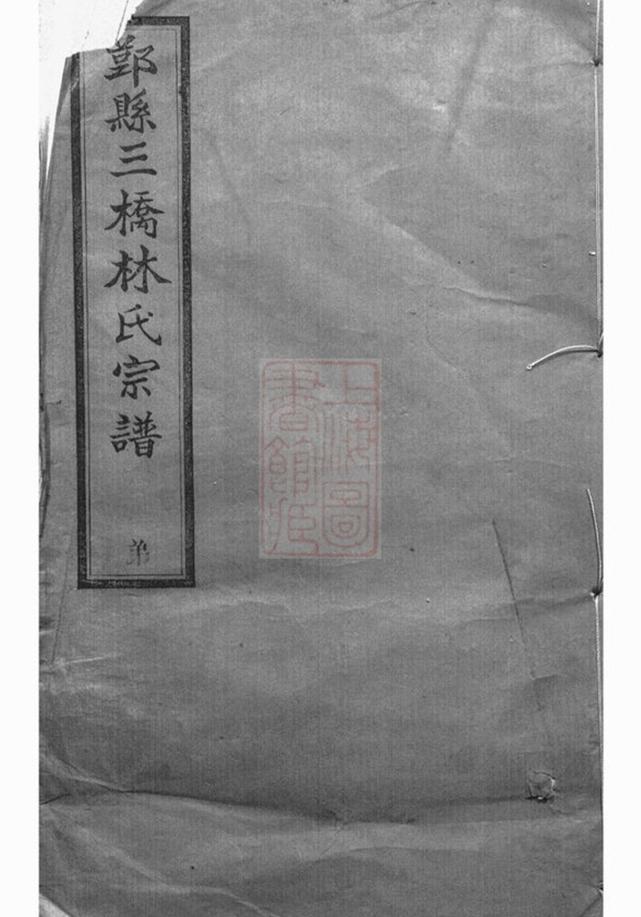 鄞縣三橋林氏宗譜
弟
上海圖
書館庄